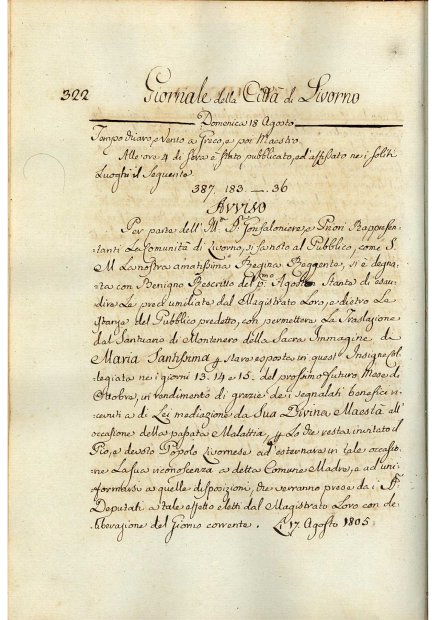 322 Giornale della Città di Livorno
Domenica 18 Agosto
Tempo chiaro, e Vento a Greco, e poi Maestro.
Alle ore 4 di sera è stato pubblicato, ed affissato ne i soliti
Luoghi il seguente
387 183 — 36
AVVISO
Per parte dell' Gonfaloniere, e Priori Rappresen-
tanti La Comunità di Livorno, si fa noto al Pubblico, come S.
M. La nostra amatissima Regina Reggente, si è degna-
ta con Benigno Rescritto del p.mo Agosto stante di esau-
dire Le preci umiliate dal Magistrato Loro, e dietro Le
istanze del Pubblico predetto, con permettere La Traslazione
dal Santuario di Montenero della Sacra Immagine di
Maria Santissima p stare esposta in quest' Insigne Col-
legiata ne i giorni 13. 14 e 15. del prossimo futuro Mese di
Ottobre, in rendimento di grazie de i segnalati benefici ri-
cevuti a di Lei mediazione da Sua Divina Maestà all'
occasione della passata Malattia Lo che resta invitato il
Pio, e devoto Popolo Livornese ad esternare in tale occasio-
ne La sua riconoscenza a detta Comune Madre, e ad uni-
formarsi a quelle disposizioni, che verranno prese da i SS.
Deputati a tale effetto eletti dal Magistrato Loro con de-
liberazione del Giorno corrente. Li 17 Agosto 1805